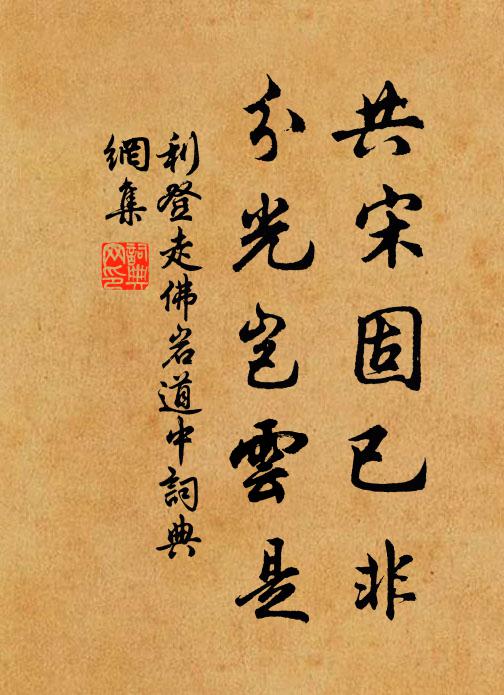 共宋固已非
分光岂雲是
利登走佛岩道中詞典
網集
詞典
網印